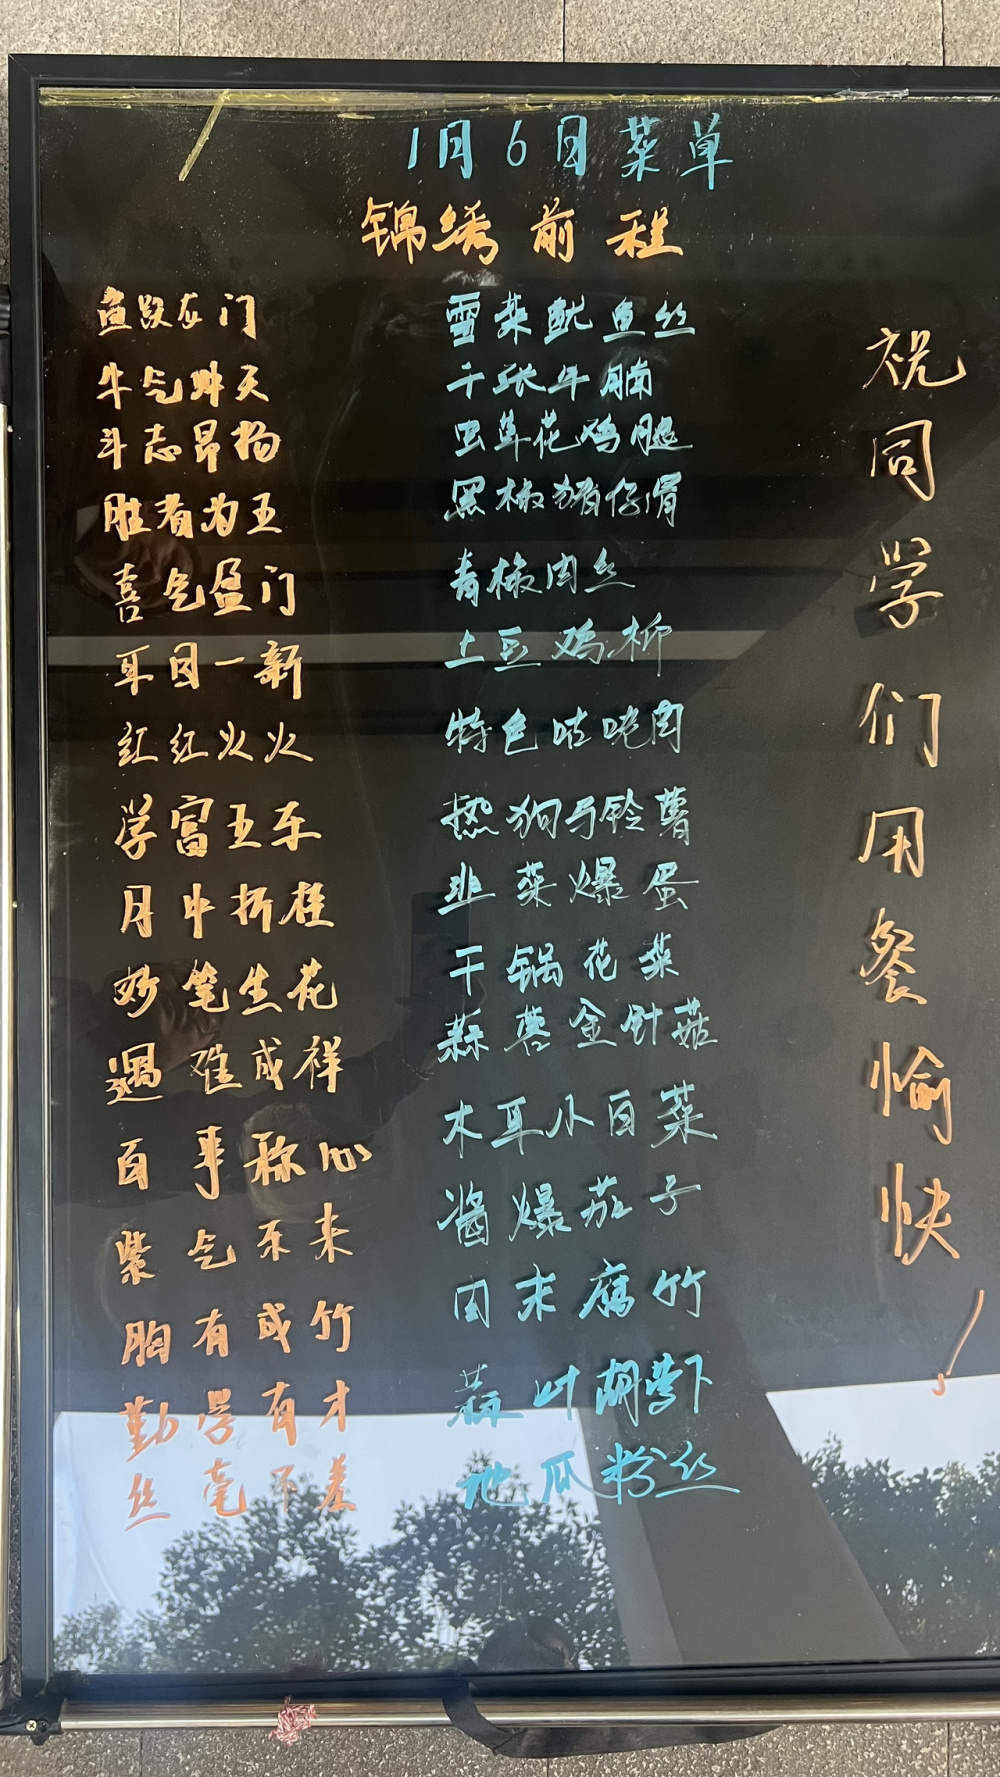 1月6日菜单
锦绣前程
鱼跃龙门 雪菜鱿鱼丝
牛气冲天 千张牛腩
斗志昂扬 虫草花鸡腿
胜者为王 黑椒猪仔骨
喜气盈门 青椒肉丝
耳目一新 土豆鸡柳
红红火火 特色咕咾肉
学富五车 热狗马铃薯
月中折桂 韭菜爆蛋
妙笔生花 干锅花菜
遇难成祥 蒜蓉金针菇
百事称心 木耳小白菜
紫气东来 酱爆茄子
胸有成竹 肉末腐竹
勤学有才 蒜叶胡萝卜
丝毫不差 地瓜粉丝
祝同学们用餐愉快!